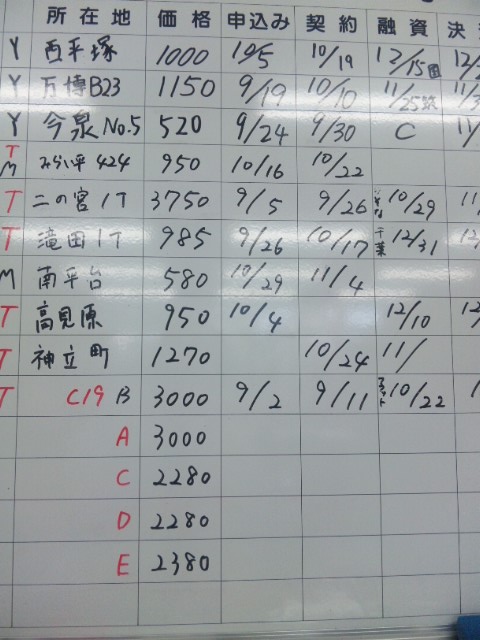 所在地 価格 申込み 契約 融資 決
Y 西平塚 1000 10/5 10/19 12/15 12/
Y 万博B23 1150 9/19 10/10 11/25 11/3
Y 今泉No.5 520 9/24 9/30 C 11/
T M みらい平424 950 10/16 10/22
T 二の宮1T 3750 9/5 9/26 10/29 11
T 滝田1T 985 9/26 10/17 千葉 12/31 12
M 南平台 580 10/29 11/4
T 高見原 950 10/4 12/10 12
T 神立町 1270 10/24 11/
T C19 B 3000 9/2 9/11 10/22
A 3000
C 2280
D 2280
E 2380